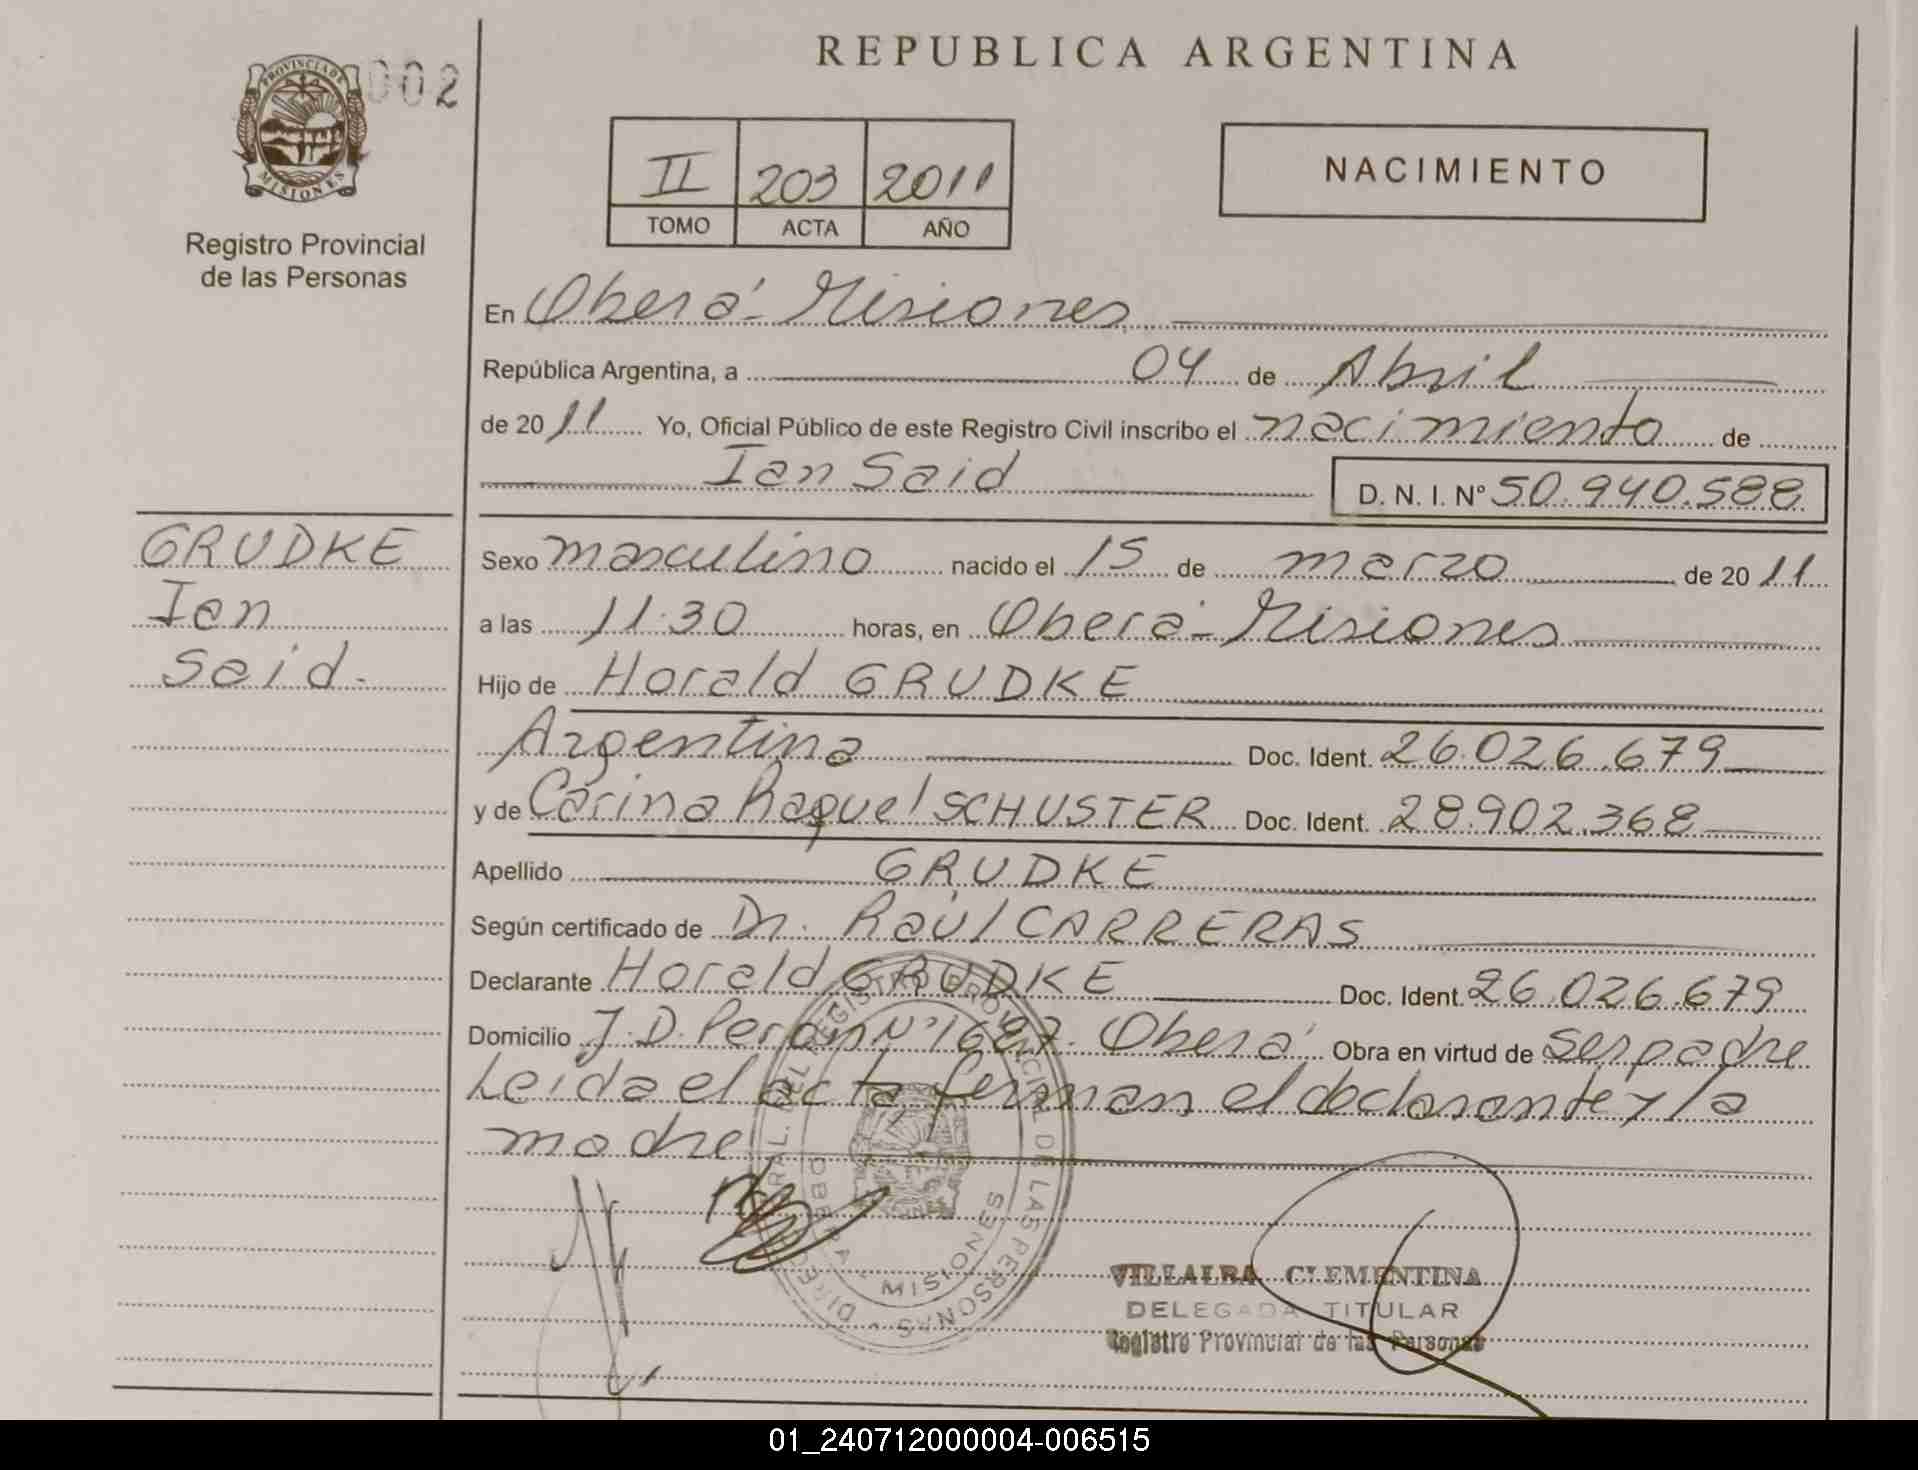 REPUBLICA ARGENTINA
PROVINCIA DE MISIONES
002
Registro Provincial
de las Personas
II 203 2011
TOMO ACTA AÑO
NACIMIENTO
En Oberá - Misiones
República Argentina, a 04 de Abril
de 2011 Yo, Oficial Público de este Registro Civil inscribo el nacimiento de
Ian Said D. N. I. Nº 50.940.588
GRUDKE
Ian
Said.
Sexo masculino nacido el 15 de marzo de 2011
a las 11:30 horas, en Oberá - Misiones
Hijo de Horald GRUDKE
Argentina Doc. Ident. 26.026.679
y de Carina Raquel SCHUSTER Doc. Ident. 28.902.368
Apellido GRUDKE
Según certificado de Dr. Raúl CARRERAS
Declarante Horald GRUDKE Doc. Ident. 26.026.679
Domicilio J. D. Perón Nº 1687. Oberá Obra en virtud de ser padre
Leída el acta firman el declarante y la
madre
DIRECC. GRAL. DEL REGISTRO PROVINCIAL DE LAS PERSONAS
OBERA - MISIONES
VILLALBA CLEMENTINA
DELEGADA TITULAR
Registro Provincial de las Personas
01_240712000004-006515